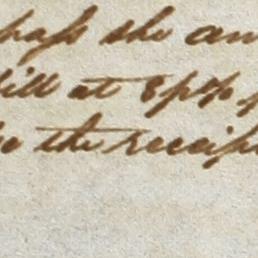 pass she am
till at 8p%
to the receip